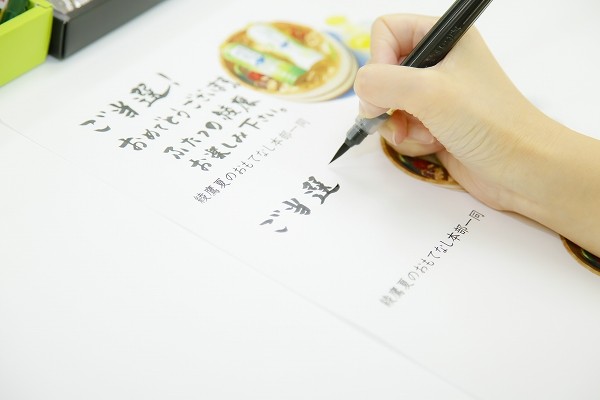 ご当選！
おめでとうございます
ふたつの綾鷹
お楽しみ下さい。
綾鷹夏のおもてなし本部一同
ご当選
綾鷹夏のおもてなし本部一同